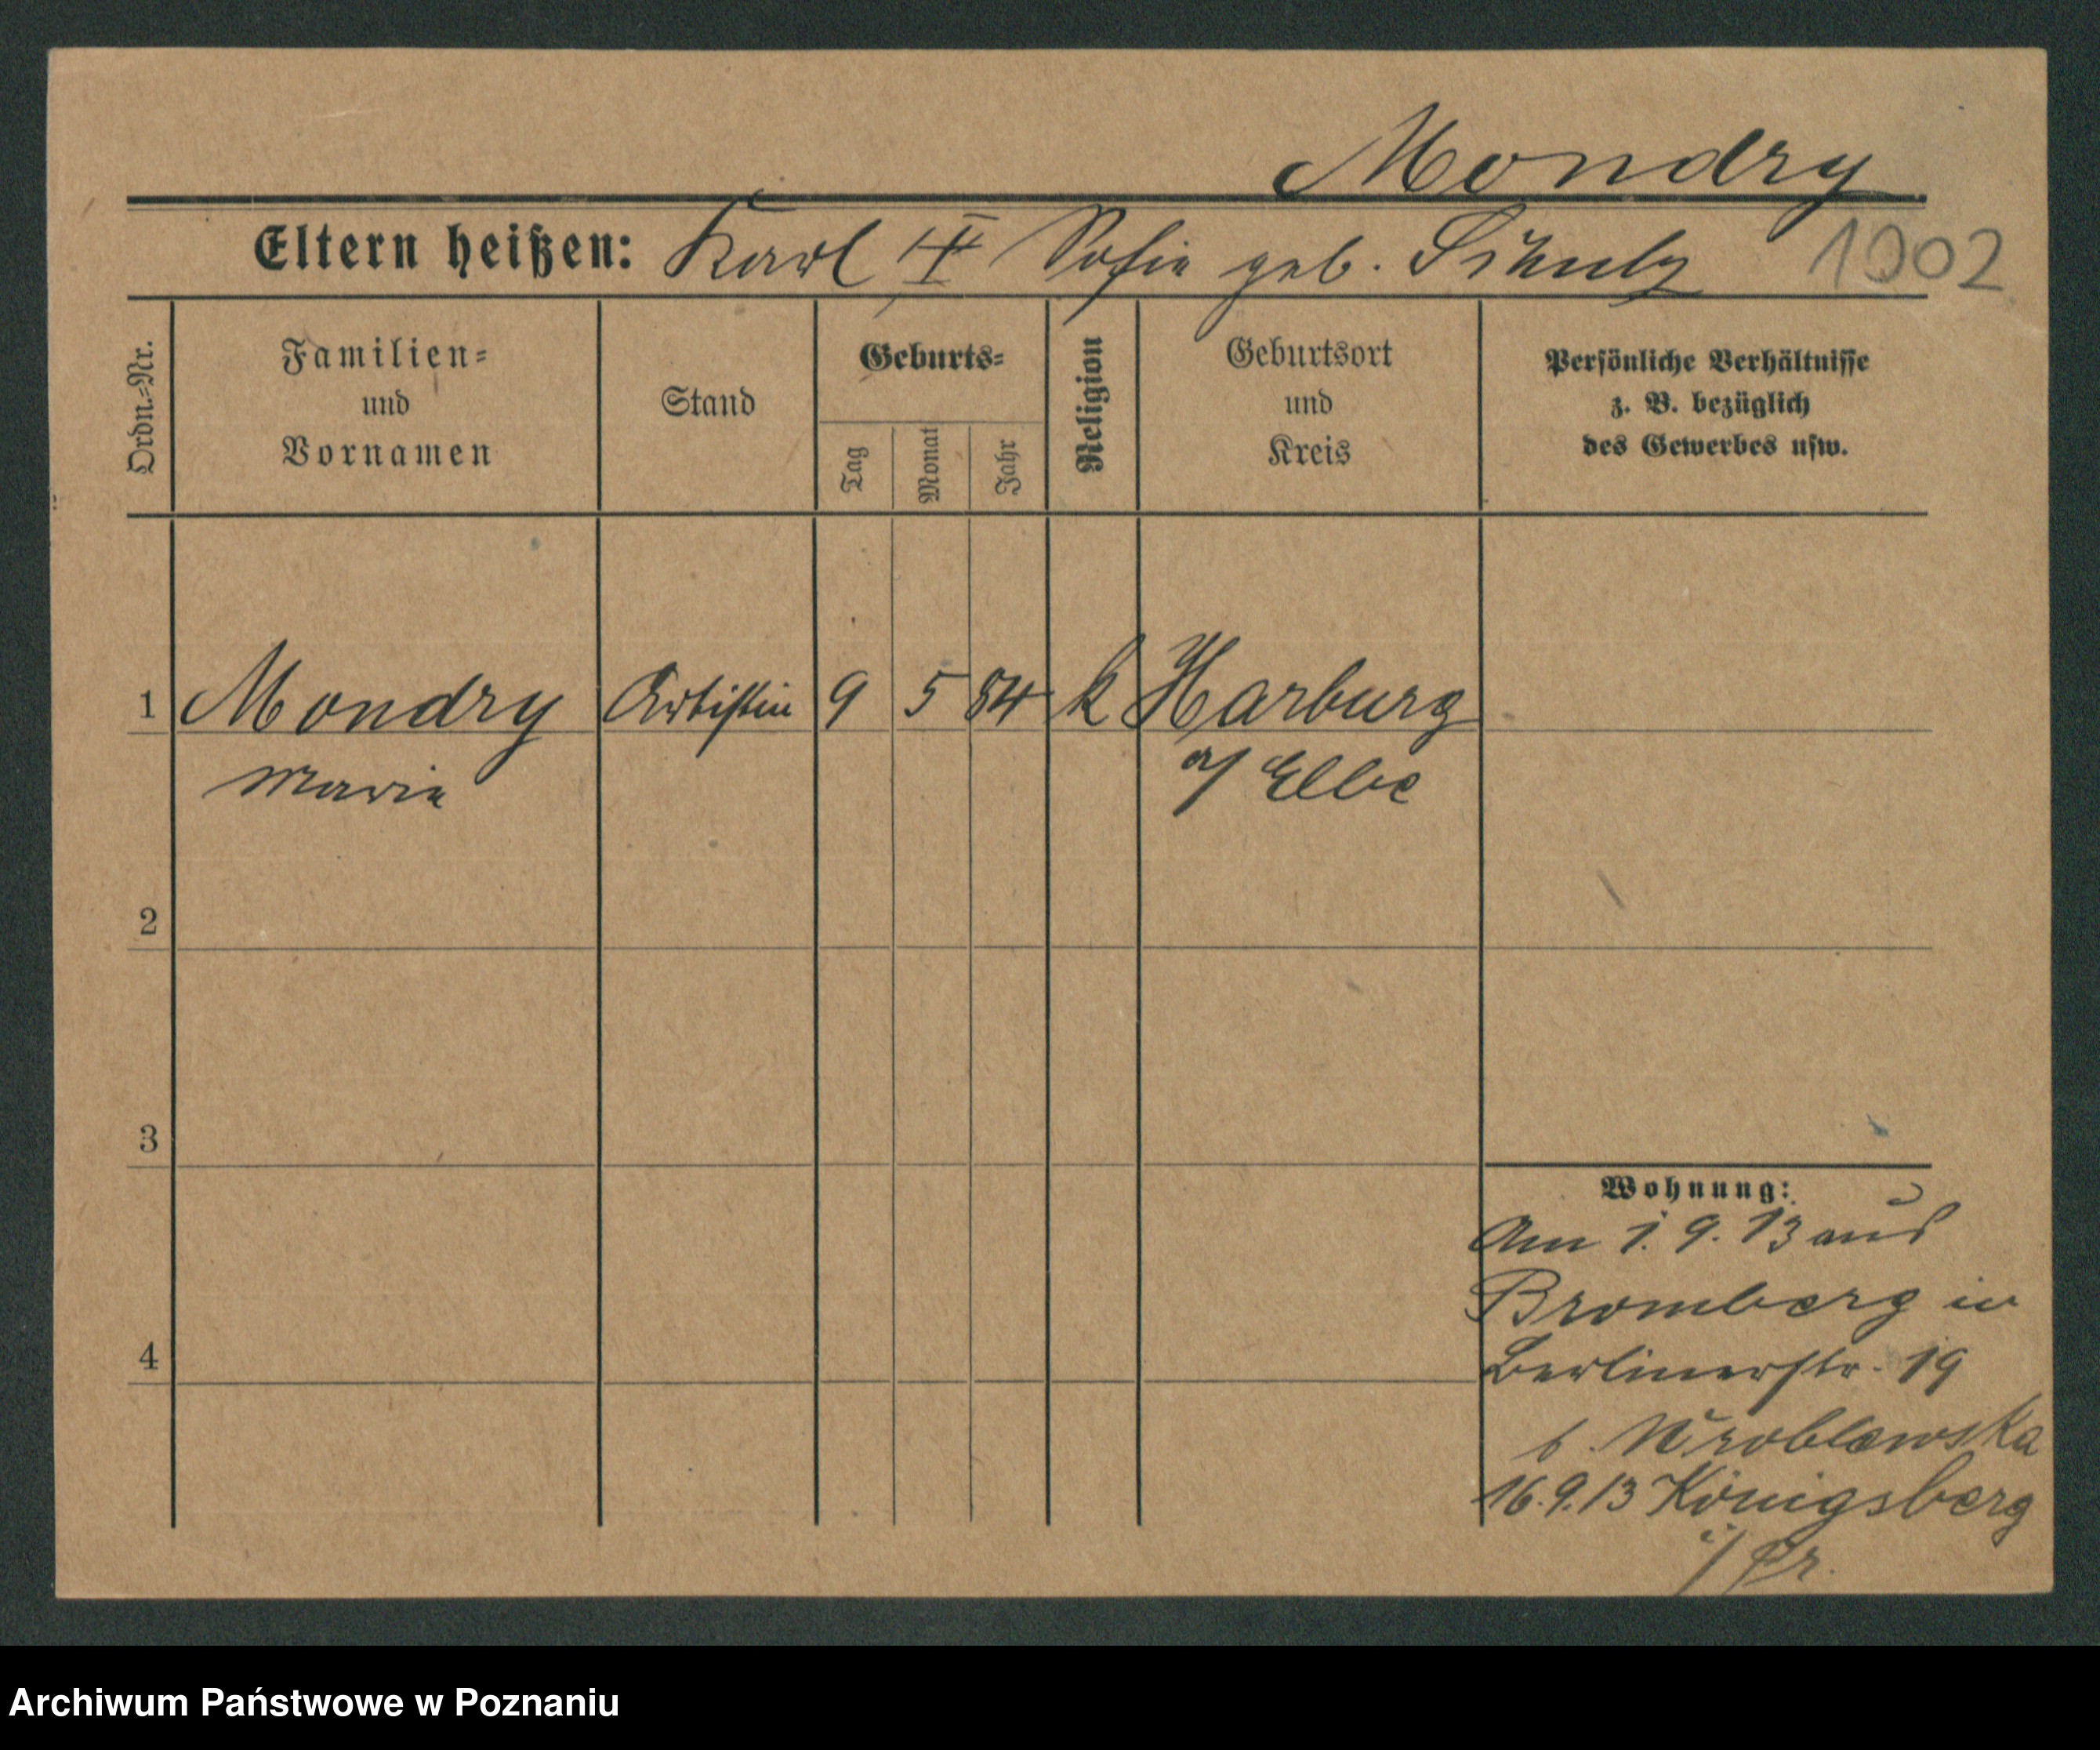 Mondry
Eltern heißen: Karl Sofie geb. Schulz 1002
Ordn.=Nr.
Familien=
und
Vornamen
Stand
Geburts=
Tag
Monat
Jahr
Religion
Geburtsort
und
Kreis
Persönliche Verhältnisse
z. B. bezüglich
des Gewerbes usw.
1 Mondry Artistin 9 5 84 k Harburg
Marie a/ Elbe
2
3
Wohnung:
Am 1. 9. 13 aus
Bromberg in
4 Berlinerstr. 19
b. Wroblewska
16.9.13 Königsberg
i/ Pr.
Archiwum Państwowe w Poznaniu